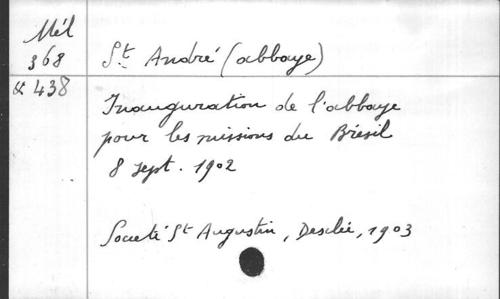 Mél
368
& 438
St André (abbaye)
Inauguration de l'abbaye
pour les missions du Brésil
8 sept. 1902
Société St Augustin, Desclée, 1903